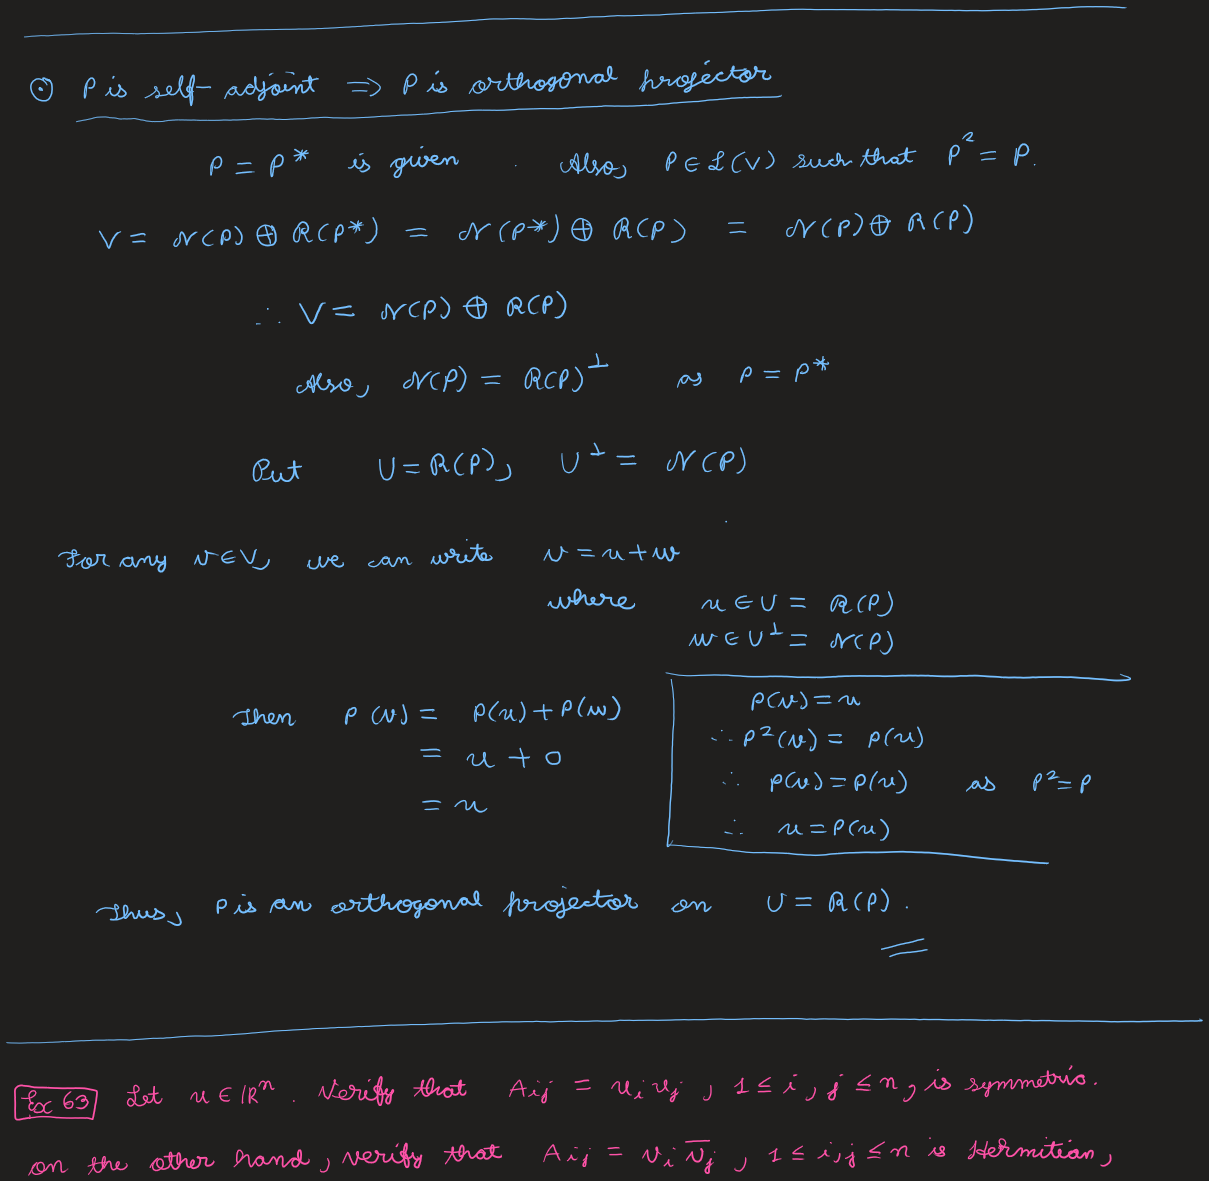 ⊙ P is self-adjoint ⇒ P is orthogonal projector
P = P* is given . Also, P ∈ ℒ(V) such that P² = P.
V = 𝒩(P) ⊕ ℛ(P*) = 𝒩(P*) ⊕ ℛ(P) = 𝒩(P) ⊕ ℛ(P)
∴ V = 𝒩(P) ⊕ ℛ(P)
Also, 𝒩(P) = ℛ(P)^⊥ as P = P*
Put U = ℛ(P), U^⊥ = 𝒩(P)
For any v ∈ V, we can write v = u + w
where u ∈ U = ℛ(P)
w ∈ U^⊥ = 𝒩(P)
Then P(v) = P(u) + P(w)
= u + 0
= u
P(v) = u
∴ P²(v) = P(u)
∴ P(v) = P(u) as P² = P
∴ u = P(u)
Thus, P is an orthogonal projector on U = ℛ(P).
Ex 63 Let u ∈ ℝⁿ. Verify that A_ij = u_i u_j, 1 ≤ i, j ≤ n, is symmetric.
on the other hand, verify that A_ij = v_i v̄_j, 1 ≤ i, j ≤ n is Hermitian,